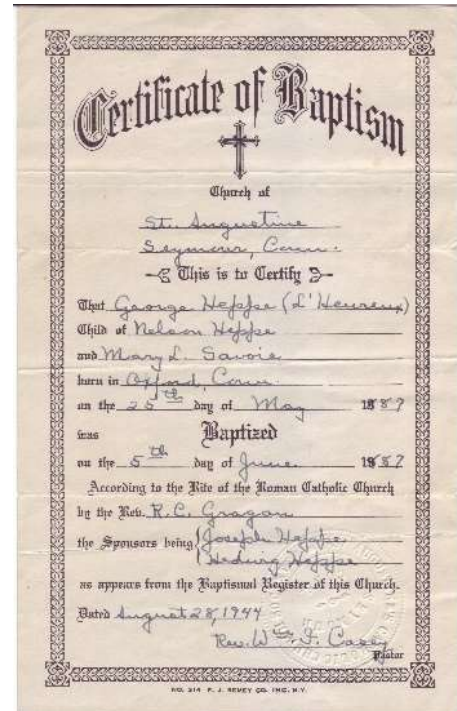 Certificate of Baptism
Church of
St. Augustine
Seymour, Conn.
This is to Certify
That George Heppe (L'Heureux)
Child of Nelson Heppe
and Mary L. Savoie
born in Oxford, Conn.
on the 25th day of May 1887
was Baptized
on the 5th day of June 1887
According to the Rite of the Roman Catholic Church
by the Rev. R. C. Gragan
the Sponsors being Joseph Heppe
Hedwig Heppe
as appears from the Baptismal Register of this Church.
Dated August 28, 1944
Rev. Wm. F. Casey
Pastor
NO. 214 F. J. REMEY CO. INC. N.Y.